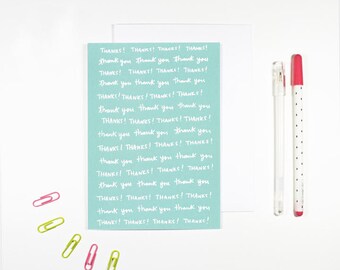 THANKS! THANKS! THANKS! THANKS!
thank you thank you thank you
THANKS! THANKS! THANKS! THANKS!
thank you thank you thank you
THANKS! THANKS! THANKS! THANKS!
thank you thank you thank you
THANKS! THANKS! THANKS! THANKS!
thank you thank you thank you
THANKS! THANKS! THANKS! THANKS!
thank you thank you thank you
THANKS! THANKS! THANKS! THANKS!
thank you thank you thank you
THANKS! THANKS! THANKS! THANKS!
thank you thank you thank you
THANKS! THANKS! THANKS! THANKS!